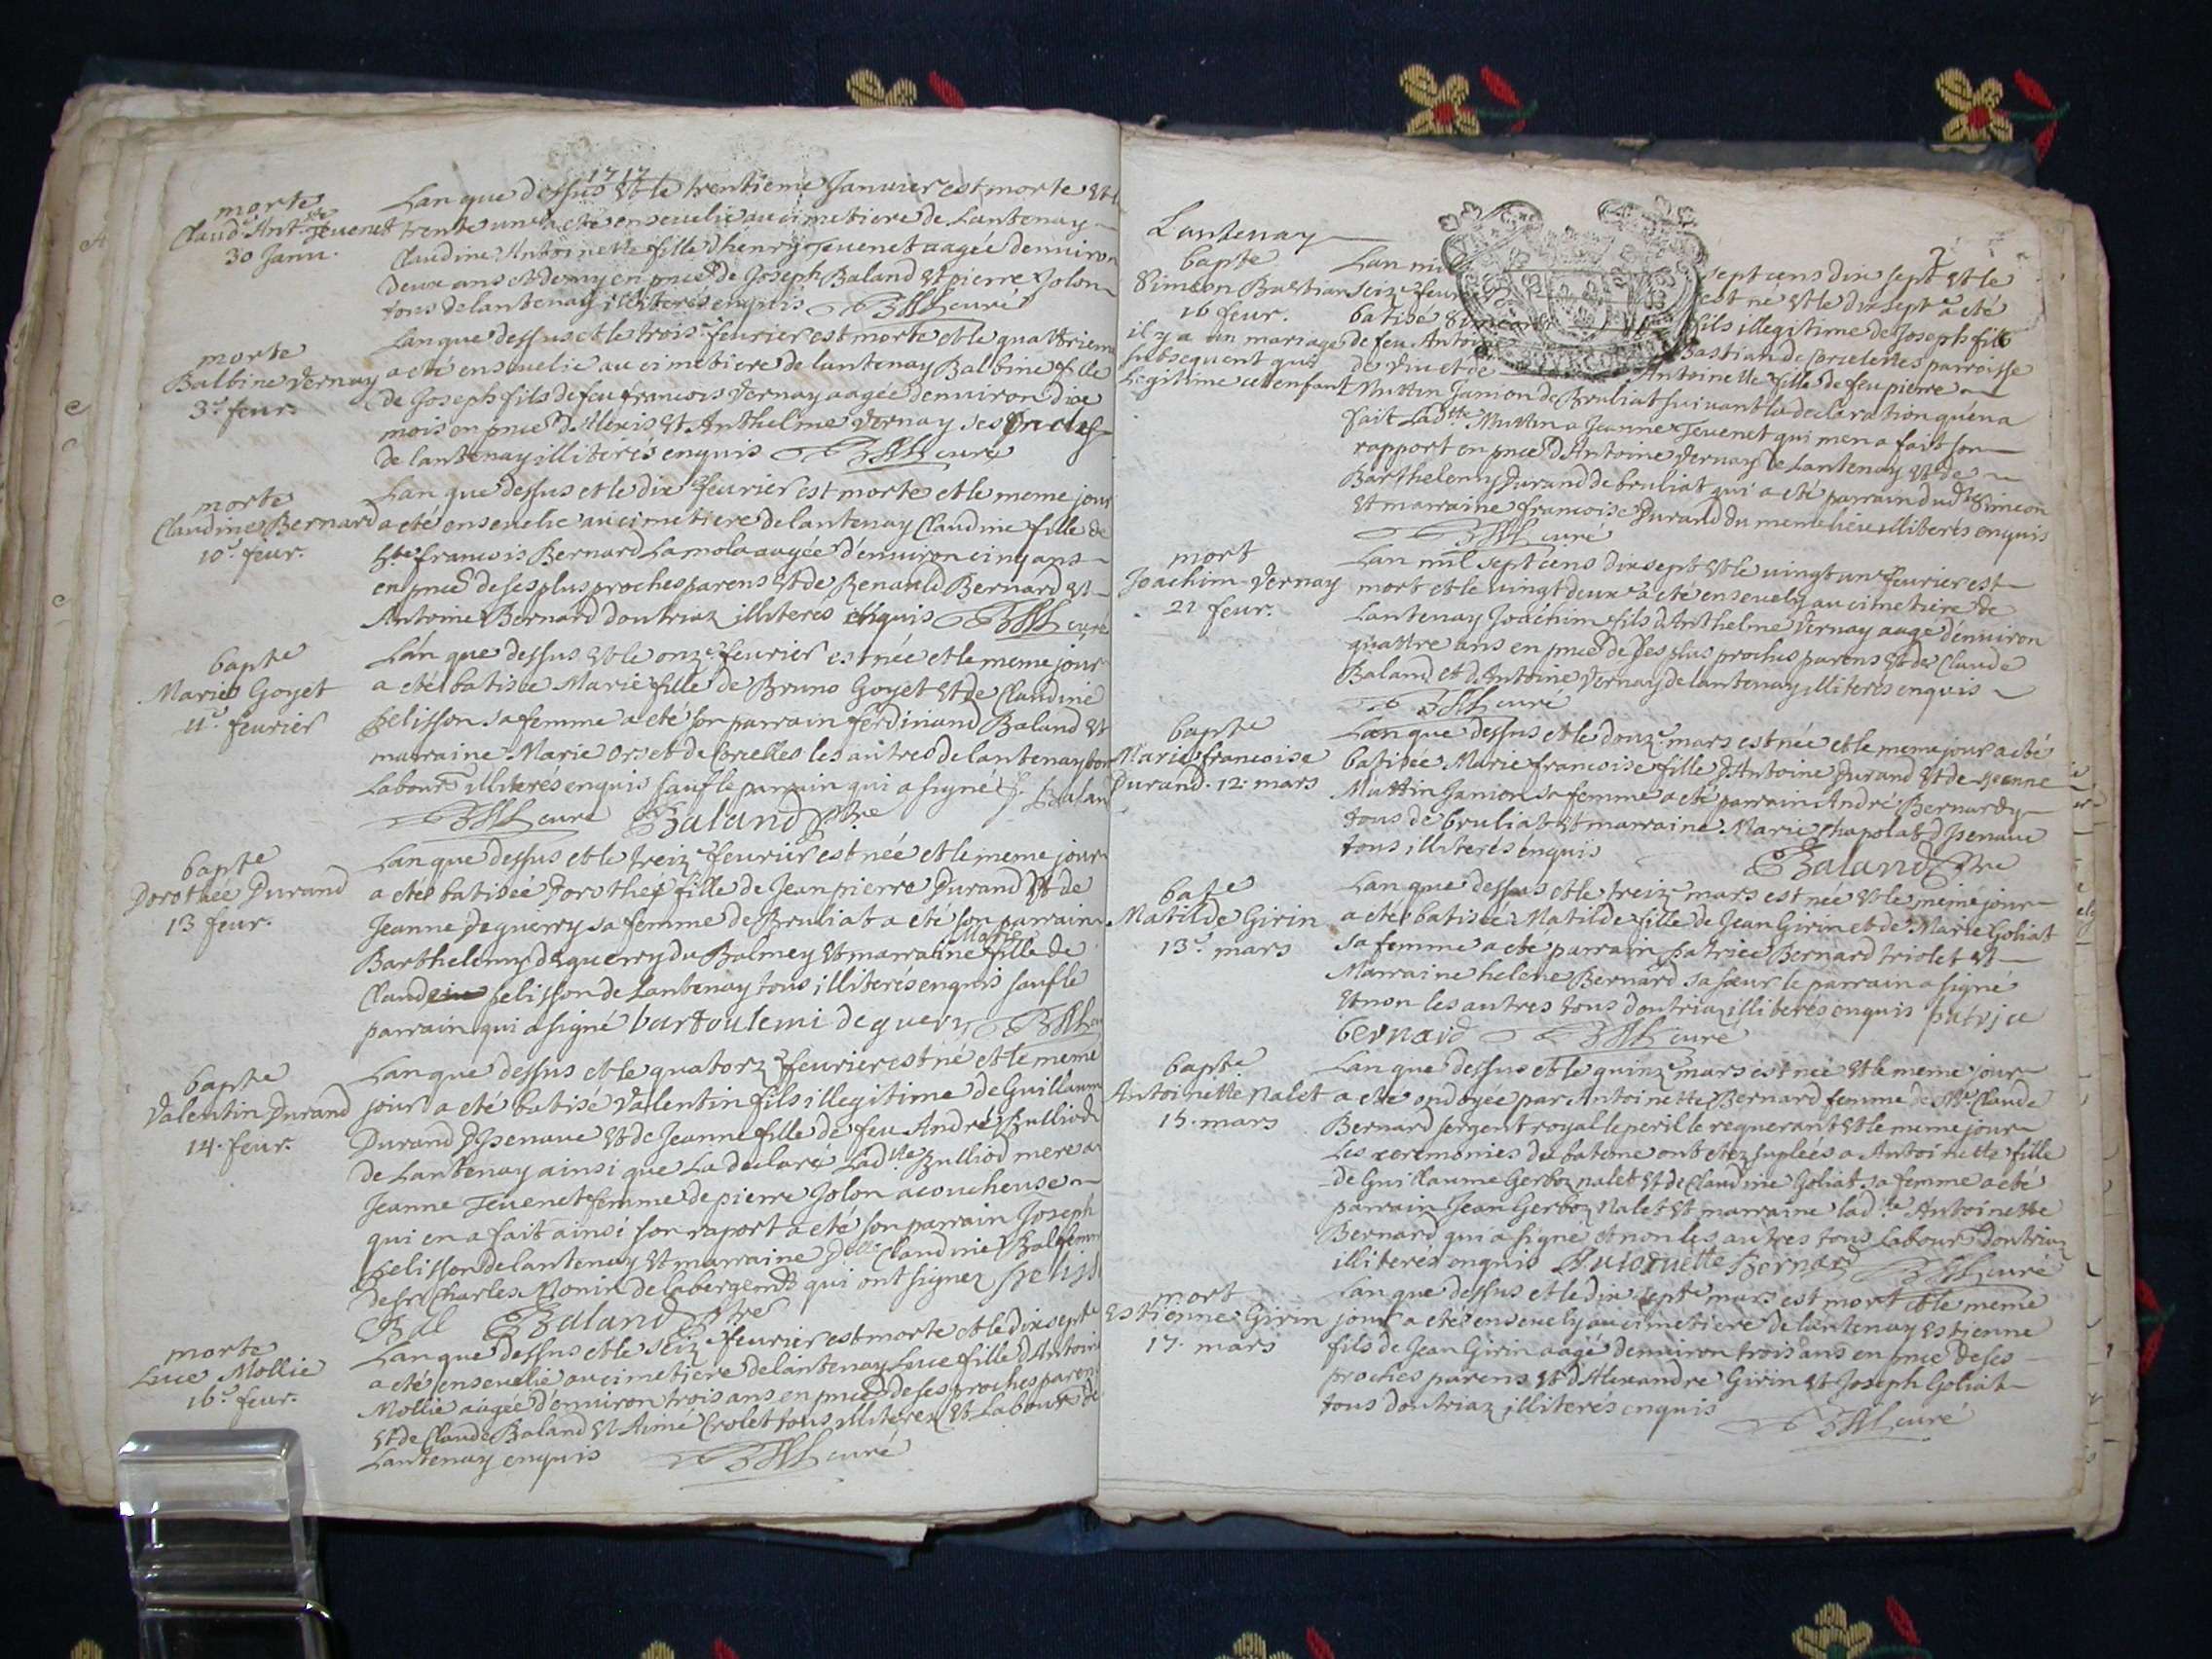 1717
morte
Claud. Antte Tevenet
30 Janu.
Lan que dessus et le trentieme Janvier est morte et l
trente un a été ensevelie au cimetiere de Lantenay
Claudine Antoinette fille d'henry Tevenet aagée denviron
deux ans et demy en pnce de Joseph Baland et pierre Jolon
tous de lantenay illiterés enquis curé
morte
Balbine Vernay
3e feur.
Lan que dessus et le trois feurier est morte et le quattrieme
a été ensevelie au cimetiere de lantenay Balbine fille
de Joseph fils de feu francois Vernay aagée denviron dix
mois en pnce d'Alexis et Anthelme Vernay ses oncles
de lantenay illiterés enquis curé
morte
Claudine Bernard
10e feur.
Lan que dessus et le dix feurier est morte et le meme jour
a été ensevelie au cimetiere de lantenay Claudine fille de
francois Bernard Lamola aagée d'environ cinq ans
en pnce de ses plus proches parens et de Renauld Bernard et
Antoine Bernard doutriaz illiteres enquis curé
bapte
Marie Goyet
11e feurier
Lan que dessus et le onze feurier est née et le meme jour
a été batisée Marie fille de Bruno Goyet et de Claudine
pelisson sa femme a été son parrain ferdinand Baland et
marraine Marie Orset de Corcelles les autres de lantenay
Labourr illiterés enquis sauf le parrain qui a signé f. Balan
curé Baland ptre
bapte
Dorothée Durand
13 feur.
Lan que dessus et le treize feurier est née et le meme jour
a été batisée Dorothée fille de Jean pierre Durand et de
Jeanne Deguerry sa femme de Bruliat a été son parrain
Marie
Barthelemy deguerry du Balmey et marraine fille de
Claude pelisson de Lantenay tous illiterés enquis sauf le
parrain qui a signé bartoulemi deguery
bapte
Valentin Durand
14. feur.
Lan que dessus et le quatorze feurier est né et le meme
jour a été batisé Valentin fils illegitime de Guillaume
Durand d'Isenave et de Jeanne fille de feu André Bulliod
de Lantenay ainsi que La declaré Ladtte Bulliod mere a
Jeanne Tevenet femme de pierre Jolon acoucheuse
qui en a fait ainsi son raport a été son parrain Joseph
pelisson de lantenay et marraine Claudine Bal femme
de sr Charles Monin de labergemt qui ont signez
Bal Baland ptre
morte
Luce Mollie
16e feur.
Lan que dessus et le seize feurier est morte et le dix sept
a été ensevelie au cimetiere de lantenay Luce fille d'Antoine
Mollie aagée d'environ trois ans en pnce de ses proches parens
et de Claude Baland et Aimé Crolet tous illiterez et Labourr de
Lantenay enquis curé
Lantenay
2
bapte
Simeon Bastian
16 feur.
il y a un mariage
subsequent qui
Legitime cet enfant
Lan mil sept cens dix sept et le
seize feurier est né et le dix sept a été
batisé Simeon fils illegitime de Joseph fils
de feu Antoine Bastian de Corcelettes parroisse
de et de Antoinette fille de feu pierre
Muttin Janion de Bruliat suivant la declaration qu'en a
fait Ladtte Muttin a Jeanne Tevenet qui m'en a fait son
rapport en pnce d'Antoine Vernay de Lantenay et de
Barthelemy Durand de bruliat qui a été parrain dudt Simeon
et marraine francoise Durand du meme lieu illiterés enquis
curé
mort
Joachim Vernay
21 feur.
Lan mil sept cens dix sept et le vingt un feurier est
mort et le vingt deux a été ensevely au cimetiere de
Lantenay Joachim fils d'Anthelme Vernay aagé d'environ
quattre ans en pnce de ses plus proches parens et de Claude
Baland et d'Antoine Vernay de lantenay illiterés enquis
curé
bapte
Marie francoise
Durand. 12. mars
Lan que dessus et le douze mars est née et le meme jour a été
batisée Marie francoise fille d'Antoine Durand et de Jeanne
Muttin Janion sa femme a été parrain André Bernardy
tous de bruliat et marraine Marie Chapolat d'Isenave
tous illiterés enquis Baland ptre
bapte
Matilde Girin
13e mars
Lan que dessus et le treize mars est née et le meme jour
a été batisée Matilde fille de Jean Girin et de Marie Goliat
sa femme a été parrain patrice Bernard triolet et
Marraine helene Bernard sa soeur le parrain a signé
et non les autres tous doutriaz illiterés enquis patrice
bernard curé
bapte
Antoinette Nalet
15. mars
Lan que dessus et le quinze mars est née et le meme jour
a été ondoyée par Antoinette Bernard femme de Me Claude
Bernard sergent royal le peril le requerant et le meme jour
Les ceremonies du bateme ont étez suplées a Antoinette fille
de Guillaume Gerboz nalet et de Claudine Goliat sa femme a été
parrain Jean Gerboz Nalet et marraine ladte Antoinette
Bernard qui a signé et non les autres tous Labourr doutriaz
illiterés enquis Antoinette Bernard curé
mort
Estienne Girin
17. mars
Lan que dessus et le dix sept mars est mort et le meme
jour a été ensevely au cimetiere de lantenay Estienne
fils de Jean Girin aagé d'environ trois ans en pnce de ses
proches parens et d'Alexandre Girin et Joseph Goliat
tous doutriaz illiterés enquis curé